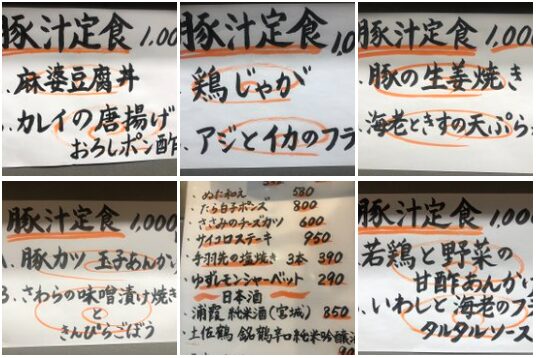 豚汁定食 1,000
、麻婆豆腐丼
、カレイの唐揚げ
おろしポン酢
豚汁定食 1,0
、鶏じゃが
、アジとイカのフラ
豚汁定食 1,000
、豚の生姜焼き
、海老ときすの天ぷら
豚汁定食 1,000
豚カツ 玉子あんか
3、さわらの味噌漬け焼き
と
きんぴらごぼう
、ぬた和え 580
、たら白子ポンズ 800
、ささみのチーズカツ 600
、サイコロステーキ 950
、手羽先の塩焼き 3本 390
、ゆずレモンシャーベット 290
日本酒
、浦霞 純米酒(宮城) 850
、土佐鶴 銘鶴辛口純米吟醸酒
豚汁定食 1,000
、若鶏と野菜の
甘酢あんかけ
、いわしと海老のフラ
タルタルソース